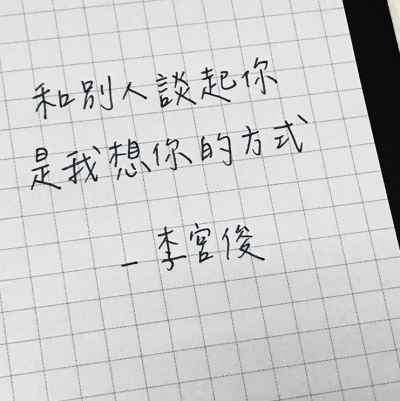 和別人談起你
是我想你的方式
－李宮俊